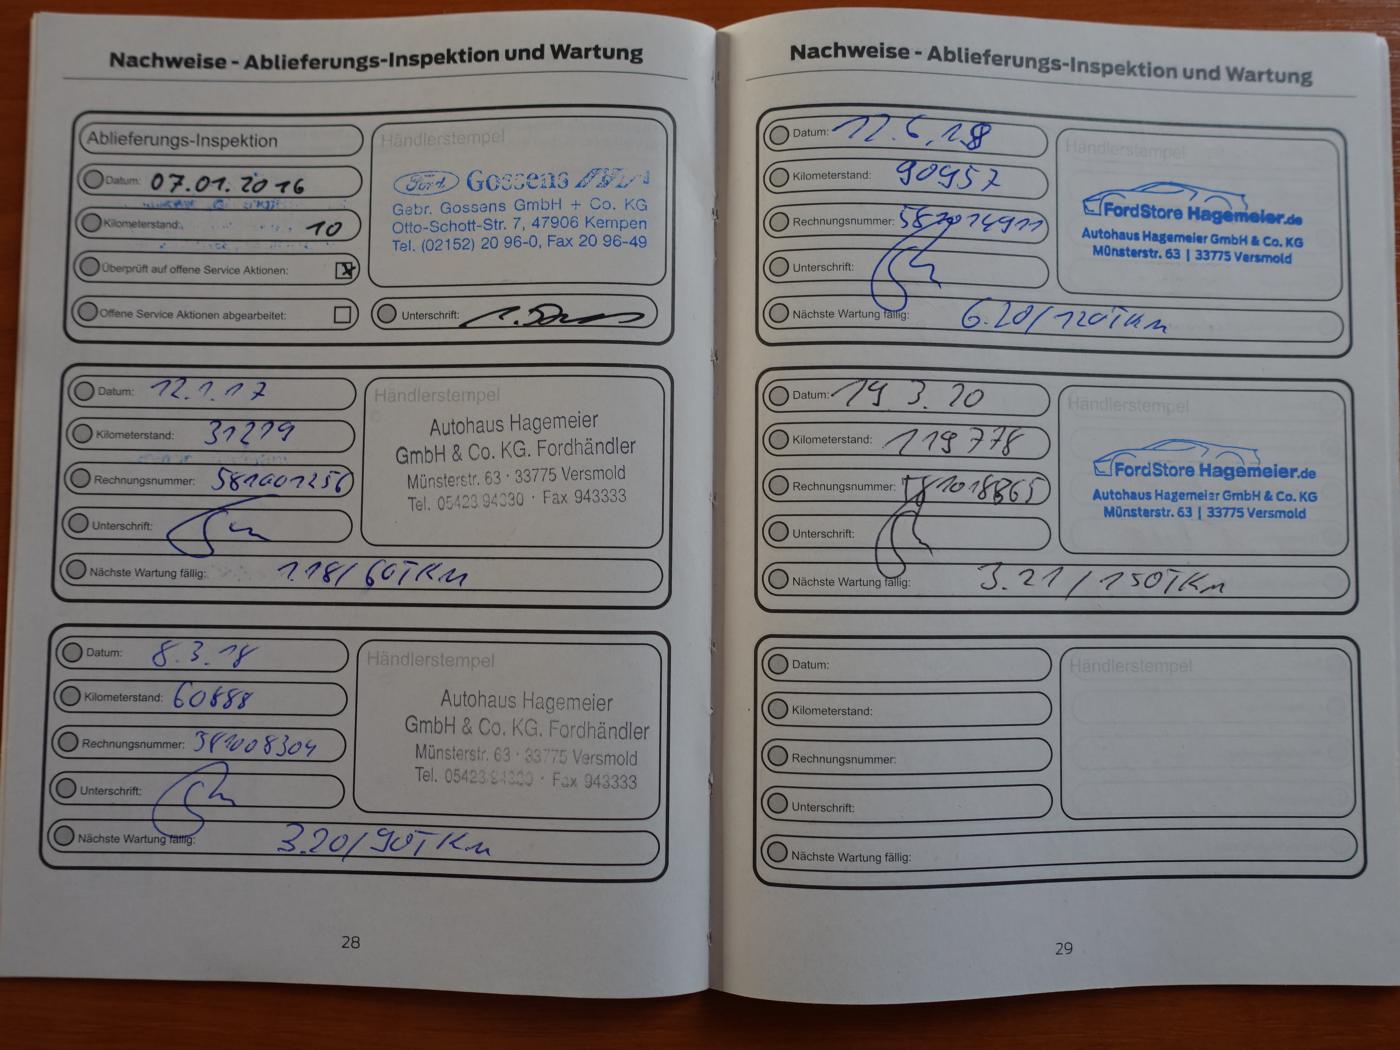 Nachweise - Ablieferungs-Inspektion und Wartung
Ablieferungs-Inspektion
Datum: 07.01.2016
Kilometerstand: 10
Überprüft auf offene Service Aktionen: X
Offene Service Aktionen abgearbeitet:
Händlerstempel
Ford Gossens
Gebr. Gossens GmbH + Co. KG
Otto-Schott-Str. 7, 47906 Kempen
Tel. (02152) 20 96-0, Fax 20 96-49
Unterschrift:
Datum: 12.1.17
Kilometerstand: 31279
Rechnungsnummer: 581001256
Unterschrift:
Nächste Wartung fällig: 1.18/60TKm
Händlerstempel
Autohaus Hagemeier
GmbH & Co. KG. Fordhändler
Münsterstr. 63 · 33775 Versmold
Tel. 05423 94330 · Fax 943333
Datum: 8.3.18
Kilometerstand: 60888
Rechnungsnummer: 581008304
Unterschrift:
Nächste Wartung fällig: 3.20/90TKm
Händlerstempel
Autohaus Hagemeier
GmbH & Co. KG. Fordhändler
Münsterstr. 63 · 33775 Versmold
Tel. 05423 94330 · Fax 943333
28
Nachweise - Ablieferungs-Inspektion und Wartung
Datum:
Kilometerstand: 90957
Rechnungsnummer: 581014911
Unterschrift:
Nächste Wartung fällig: 6.20/120TKm
Händlerstempel
FordStore Hagemeier.de
Autohaus Hagemeier GmbH & Co. KG
Münsterstr. 63 | 33775 Versmold
Datum: 19.3.20
Kilometerstand: 119778
Rechnungsnummer: 581018865
Unterschrift:
Nächste Wartung fällig: 3.21/150TKm
Händlerstempel
FordStore Hagemeier.de
Autohaus Hagemeier GmbH & Co. KG
Münsterstr. 63 | 33775 Versmold
Datum:
Kilometerstand:
Rechnungsnummer:
Unterschrift:
Nächste Wartung fällig:
Händlerstempel
29